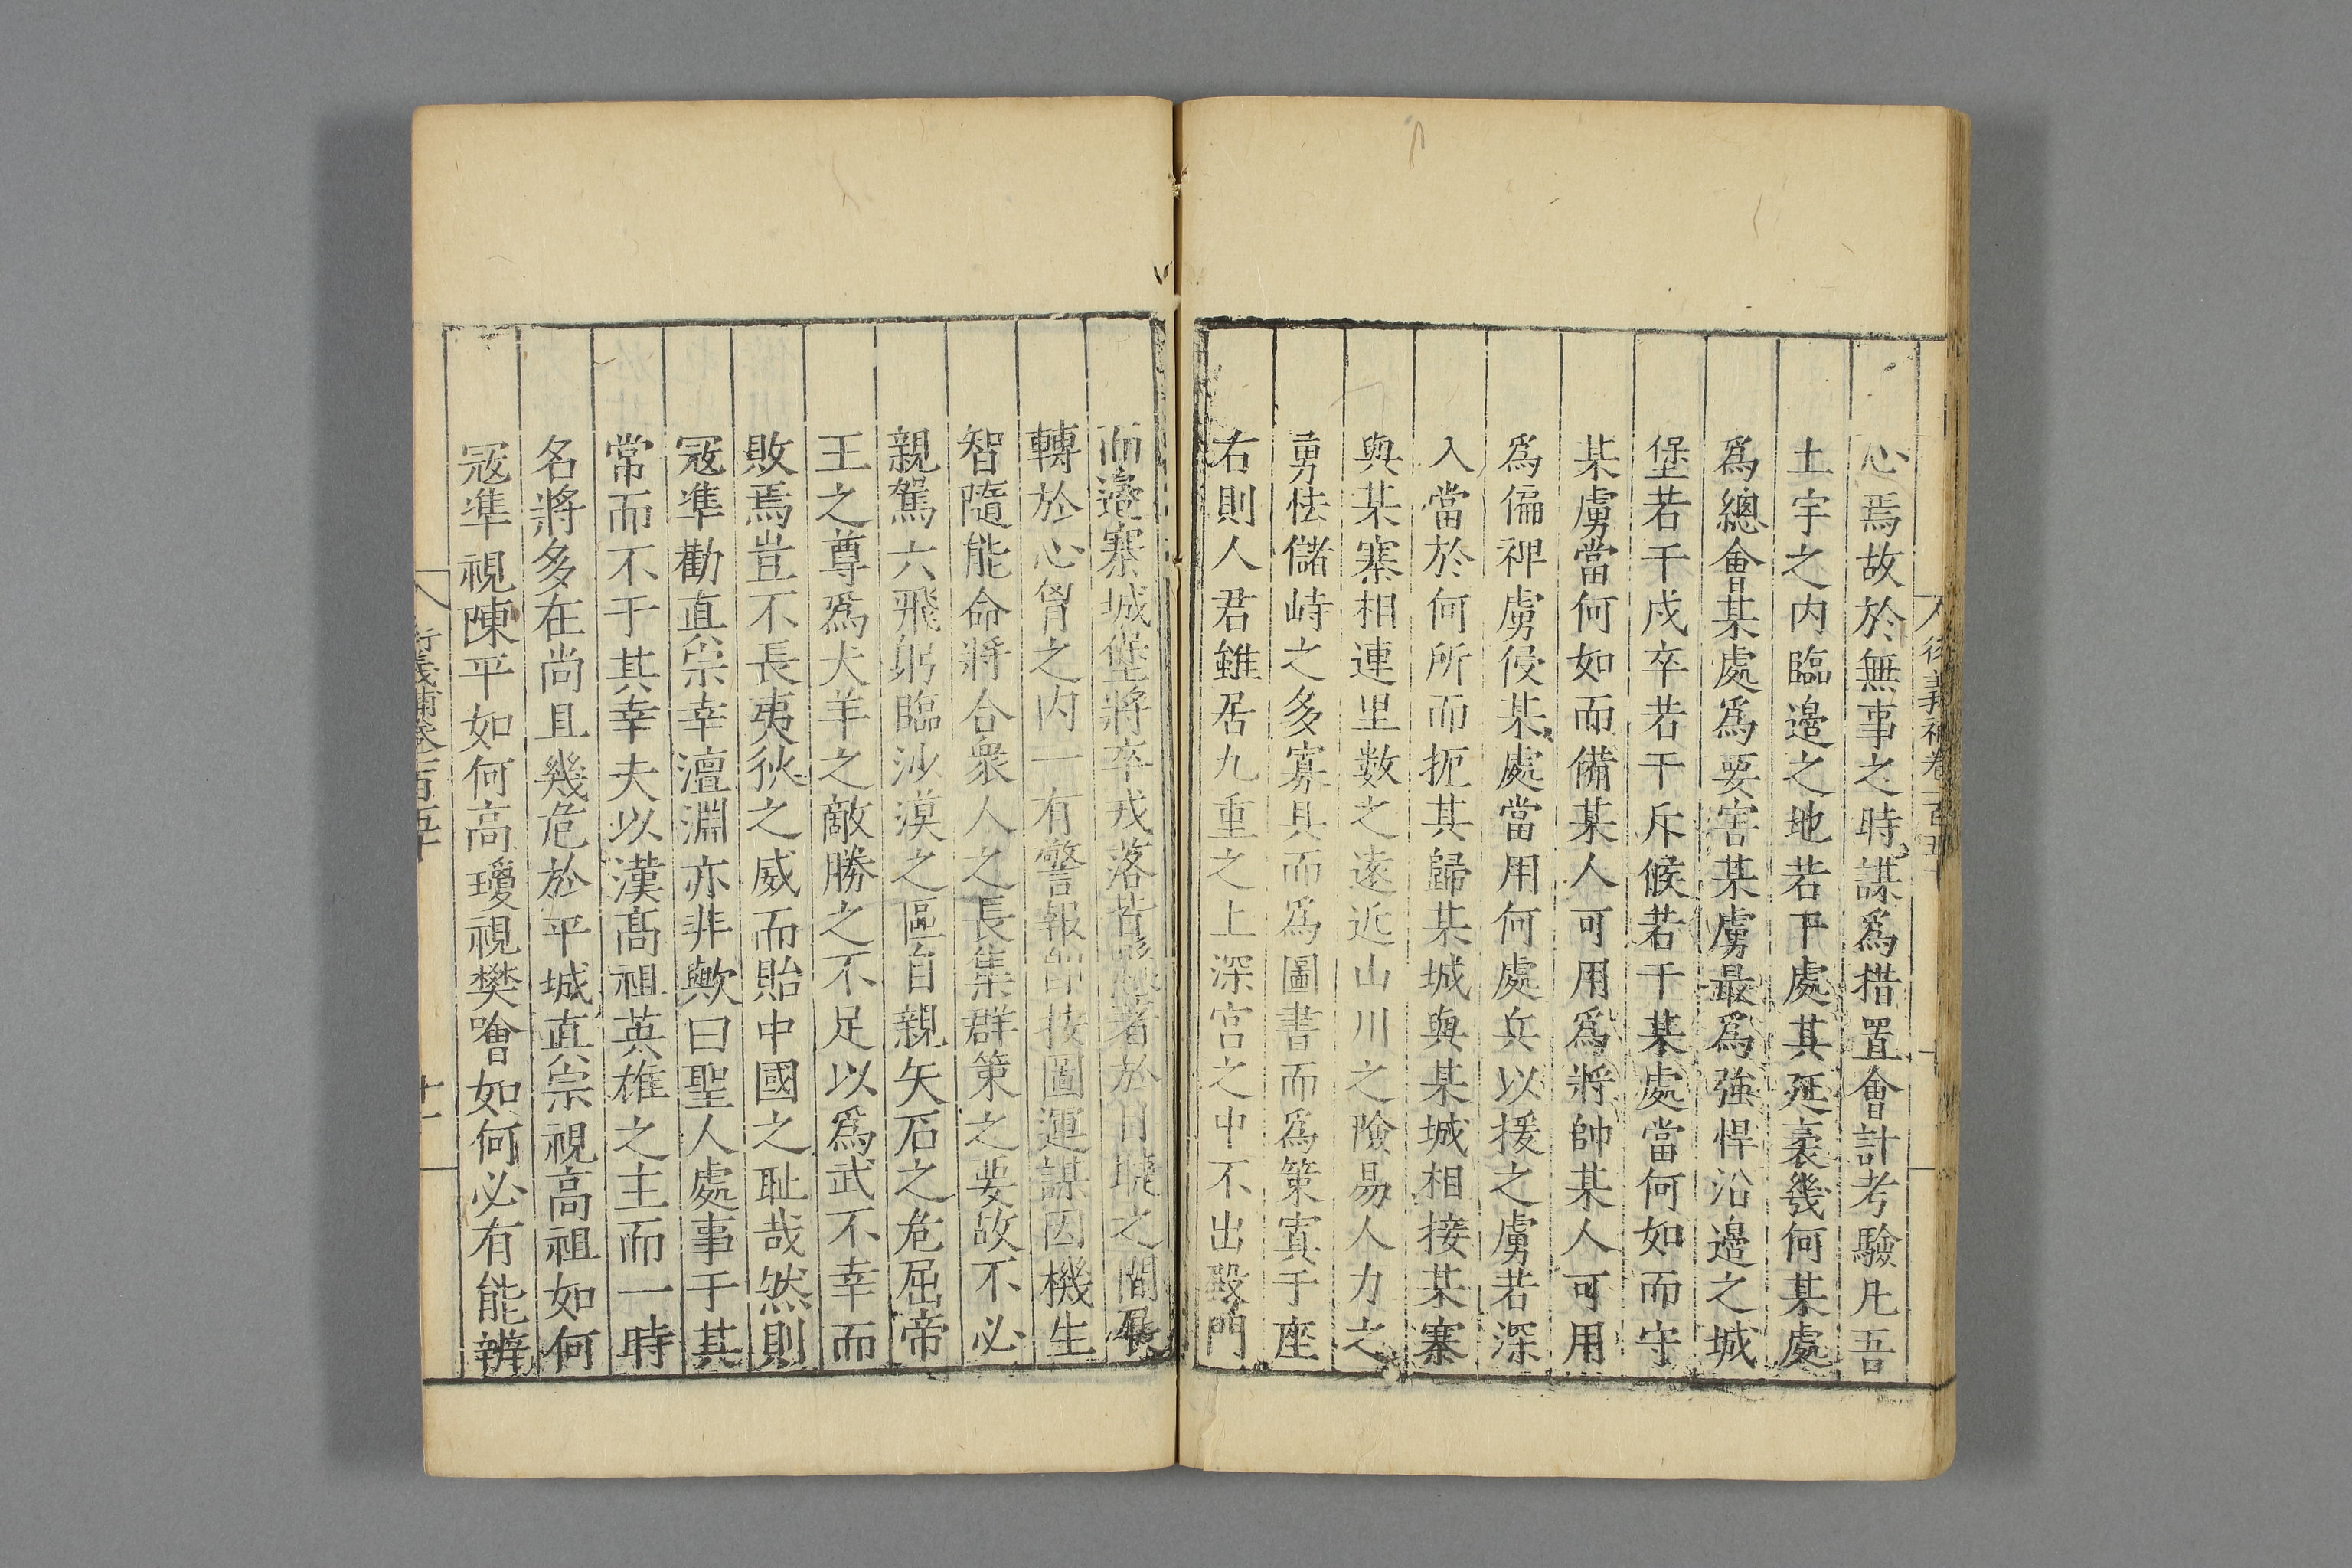 心焉故於無事之時謀爲措置會計考驗凡吾
土宇之内臨邉之地若干處其延袤幾何某處
爲總會某處爲要害某虜最爲強悍沿邉之城
堡若干戍卒若干斥候若干某處當何如而守
某虜當何如而備某人可用爲將帥某人可用
爲偏裨虜侵某處當用何處兵以援之虜若深
入當於何所而扼其歸某城與某城相接某寨
與某寨相連里数之遠近山川之險易人力之
勇怯儲峙之多寡具而爲圖書而爲策寘于座
右則人君雖居九重之上深宫之中不出殿門
而邉寨城堡將卒戎落皆懸著於目睫之間展
轉於心胷之内一有警報即按圖運謀因機生
智隨能命將合衆人之長集群策之要故不必
親駕六飛躬臨沙漠之區自親矢石之危屈帝
王之尊爲犬羊之敵勝之不足以爲武不幸而
敗焉豈不長夷狄之威而貽中國之耻哉然則
冦凖勸真宗幸澶淵亦非歟曰聖人處事于其
常而不于其幸夫以漢髙祖英雄之主而一時
名將多在尚且幾危於平城真宗視高祖如何
冦凖視陳平如何高瓊視樊噲如何必有能辨
衍義補卷一百五十
十一